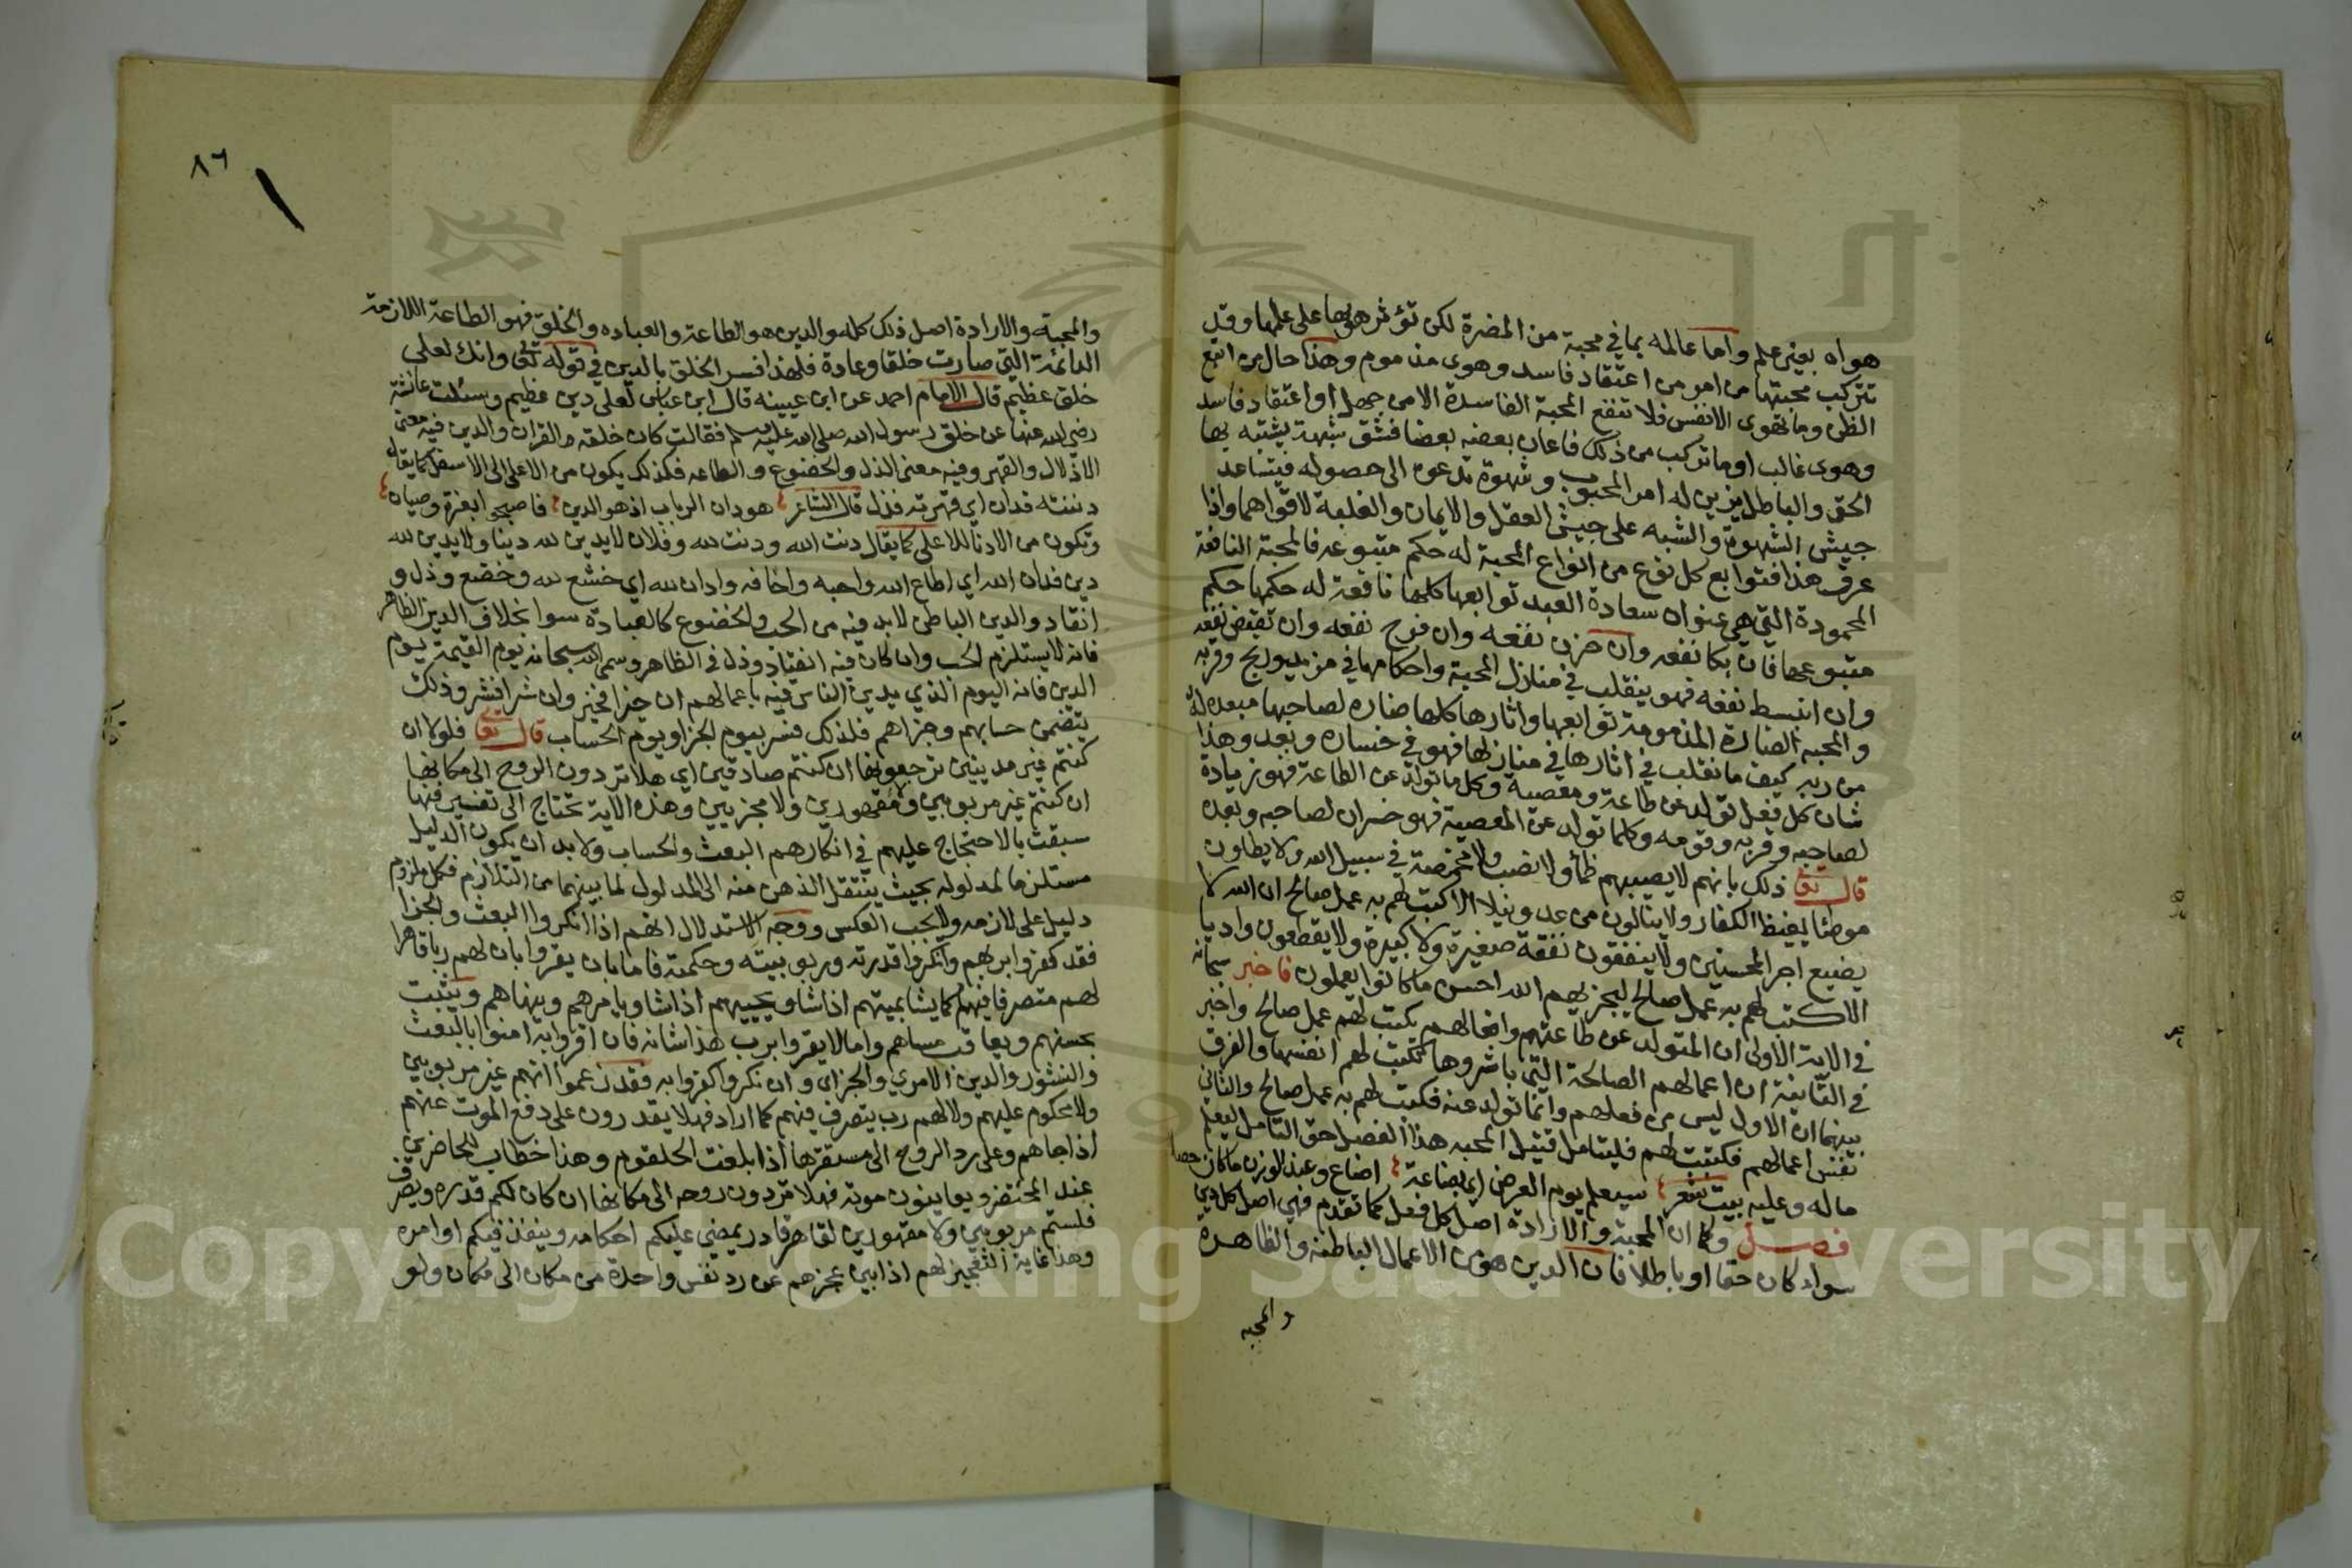 هواه بغير علم واما عالمه بما في محبة من المضرة لكن تؤثر هواها على علمها وقد
تتركب محبتها من امرين اعتقاد فاسد وهوى مذموم وهذا حال من اتبع
الظن وما تهوى الانفس فلا تقع المحبة الفاسدة الا من جهل او اعتقاد فاسد
وهوى غالب او ما تركب من ذلك فاعان بعضه بعضا فتتفق شبهة يشتبه بها
الحق والباطل يزين له امر المحبوب وشهوة تدعوه الى حصوله فيتساعد
جيش الشهوة والشبه على جيش العقل والايمان والغلبة لاقواهما واذا
عرف هذا فتوابع كل نوع من انواع المحبة له حكم متبوعه فالمحبة النافعة
المحمودة التي هي عنوان سعادة العبد توابعها كلها نافعة له حكمها حكم
متبوعها فان بكا نفعه وان حزن نفعه وان فرح نفعه وان تقبض نفعه
وان انبسط نفعه فهو يتقلب في منازل المحبة واحكامها في مزيد وربح وقربه
والمحبه الضارة المذمومة توابعها واثارها كلها ضاره لصاحبها مبعده له
من ربه كيف ما تقلب في اثارها في منازلها فهو في خساره وبعد وهذا
شان كل فعل تولد عن طاعة ومعصية وكل ما تولد عن الطاعة فهو زيادة
لصاحبه وقربه وقومه وكلما تولد عن المعصية فهو خسران لصاحبه وبعده
قال تعالى ذلك بانهم لا يصيبهم ظمأ ولا نصب ولا مخمصة في سبيل الله ولا يطاون
موطئا يغيظ الكفار ولا ينالون من عدو نيلا الا كتب لهم به عمل صالح ان الله لا
يضيع اجر المحسنين ولا ينفقون نفقة صغيرة ولا كبيرة ولا يقطعون واديا
الا كتب لهم به عمل صالح ليجزيهم الله احسن ما كانوا يعملون فاخبر سبحانه
في الاية الاولى ان المتولد عن طاعتهم وافعالهم يكتب لهم عمل صالح واخبر
في الثانية ان اعمالهم الصالحة التي باشروها تكتب لهم انفسها والفرق
بينهما ان الاول ليس من فعلهم وانما تولد عنه فكتب لهم به عمل صالح والثاني
نفس اعمالهم فكتبت لهم فليتامل قتيل المحبه هذا الفصل حق التامل ليعلم
ماله وعليه بيت شعر سيعلم يوم العرض اي بضاعة اضاع وعند الوزن ما كان حصلا
فصل وكما ان المحبة والارادة اصل كل فعل كما تقدم فهي اصل كل دين
سواء كان حقا او باطلا فان الدين هو من الاعمال الباطنه والظاهرة
والمحبه
٨٦
والمحبة والارادة اصل ذلك كله والدين هو الطاعة والعباده والخلق فهو الطاعة اللازمة
الدائمة التي صارت خلقا وعادة فلهذا فسر الخلق بالدين في قوله تعالى وانك لعلى
خلق عظيم قال الامام احمد عن ابن عيينه قال ابن عباس لعلى دين عظيم وسئلت عائشة
رضي الله عنها عن خلق رسول الله صلى الله عليه وسلم فقالت كان خلقه القران والدين فيه معنى
الاذلال والقهر وفيه معنى الذل والخضوع والطاعه فكذلك يكون من الاعلى الى الاسفل كما يقال
دننته فدان اي قهرته فذل قال الشاعر هو دان الرباب اذ هو الدين فاصبحوا بغزة وصيال
وتكون من الادنا للاعلى كما يقال دنت الله ودنت لله وفلان لا يدين لله دينا ولا يدين لله
دين فدان الله اي اطاع الله واحبه واخافه وادان لله اي خشع لله وخضع وذل و
انقاد والدين الباطن لا بد فيه من الحب والخضوع كالعبادة سوا بخلاف الدين الظاهر
فانه لا يستلزم الحب وان كان فيه انقياد وذل في الظاهر وسمى الله سبحانه يوم القيمة يوم
الدين فانه اليوم الذي يدين الناس فيه باعمالهم ان خيرا فخير وان شرا فشر وذلك
يتضمن حسابهم وجزاهم فلذلك فسر بيوم الجزا ويوم الحساب قال تعالى فلولا ان
كنتم غير مدينين ترجعونها ان كنتم صادقين اي هلا تردون الروح الى مكانها
ان كنتم غير مربوبين ولا مقهورين ولا مجزيين وهذه الاية تحتاج الى تفسير فانها
سيقت بالاحتجاج عليهم في انكارهم البعث والحساب ولا بد ان يكون الدليل
مستلزما لمدلوله بحيث ينتقل الذهن منه الى المدلول لما بينهما من التلازم فكل ملزوم
دليل على لازمه ولا يجب العكس ووجه الاستدلال انهم اذا انكروا البعث والجزا
فقد كفروا بربهم وانكروا قدرته وربوبيته وحكمته فاما بان يقروا بان لهم ربا قاهرا
لهم متصرفا فيهم كما يشا يميتهم اذا شا ويحييهم اذا شا ويامرهم وينهاهم ويثبت
بحسنهم ويعاقب مساهم واما لا يقروا برب هذا شانه فان اقروا به امنوا بالبعث
والنشور والدين الامري والجزاى وان نكروا كفروا به فقد زعموا انهم غير مربوبين
ولا محكوم عليهم ولا لهم رب يتصرف فيهم كما اراد فهلا يقدرون على دفع الموت عنهم
اذا جاهم وعلى رد الروح الى مستقرها اذا بلغت الحلقوم وهذا خطاب للحاضرين
عند المحتضر ويعاينون موته فهلا تردون روحه الى مكانها ان كان لكم قدره وتصرف
فلستم مربوبين ولا مقهورين لقاهر قادر يمضي عليكم احكامه وينفذ فيكم اوامره
وهذا غاية التعجيز لهم اذا بين عجزهم عن رد نفس واحدة من مكان الى مكان ولو
Copyright © King Saud University